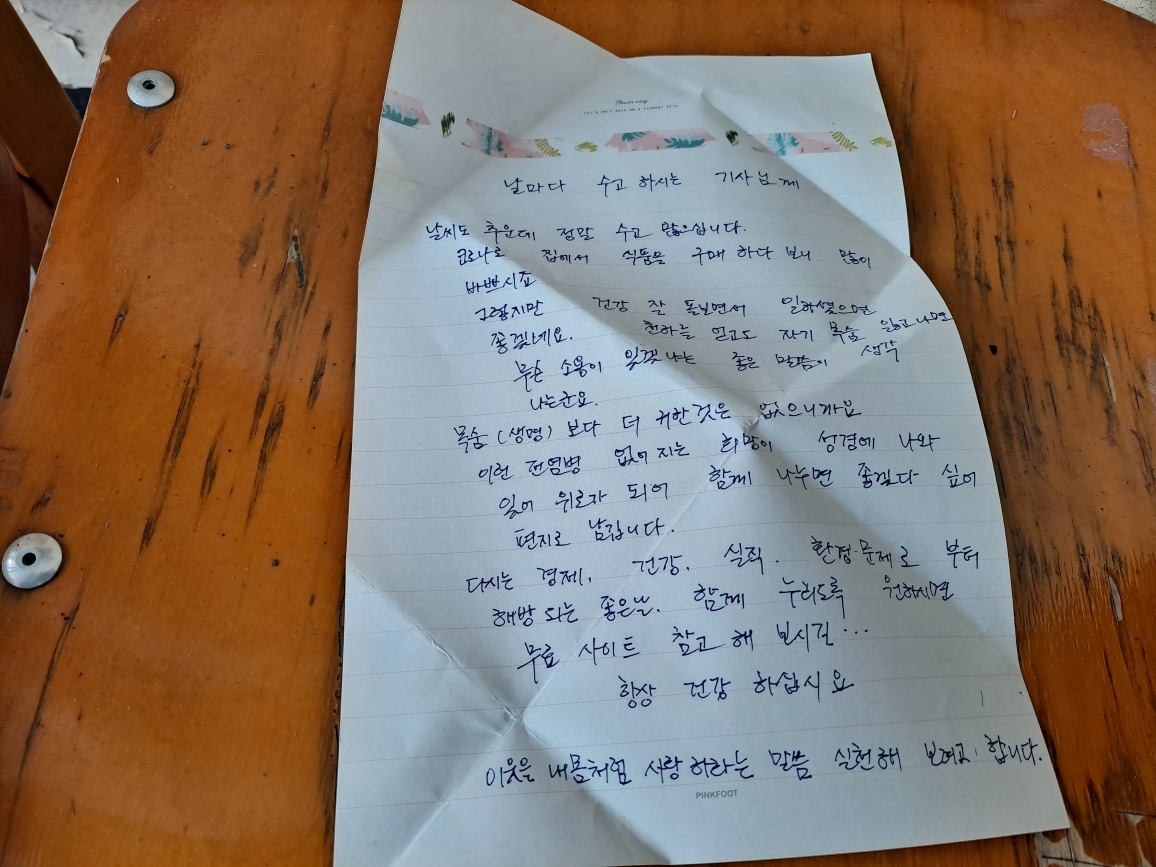 Flower way
LET'S ONLY WALK ON A FLOWERY PATH
날마다 수고 하시는 기사님께
날씨도 추운데 정말 수고 많으십니다.
코로나로 집에서 식품을 구매 하다 보니 많이
바쁘시죠
그렇지만 건강 잘 돌보면서 일하셨으면
좋겠네요. 천하를 얻고도 자기 목숨 잃고 나면
무슨 소용이 있겠 나는 좋은 말씀이 생각
나는군요.
목숨 (생명) 보다 더 귀한것은 없으니까요
이런 전염병 없어 지는 희망이 성경에 나와
있어 위로자 되어 함께 나누면 좋겠다 싶어
편지로 남깁니다.
다시는 경제. 건강. 실직. 환경문제로 부터
해방 되는 좋은날. 함께 누리도록 원하시면
무료 사이트 참고 해 보시길...
항상 건강 하십시요
이웃을 내몸처럼 사랑하라는 말씀 실천해 보려고 합니다.
PINKFOOT